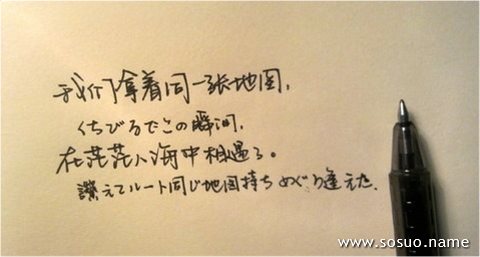 我们拿着同一张地图，
くちびるでこの瞬间，
在茫茫人海中相遇了。
讃えてルート同じ地图持ちめぐり逢えた.
www.sosuo.name